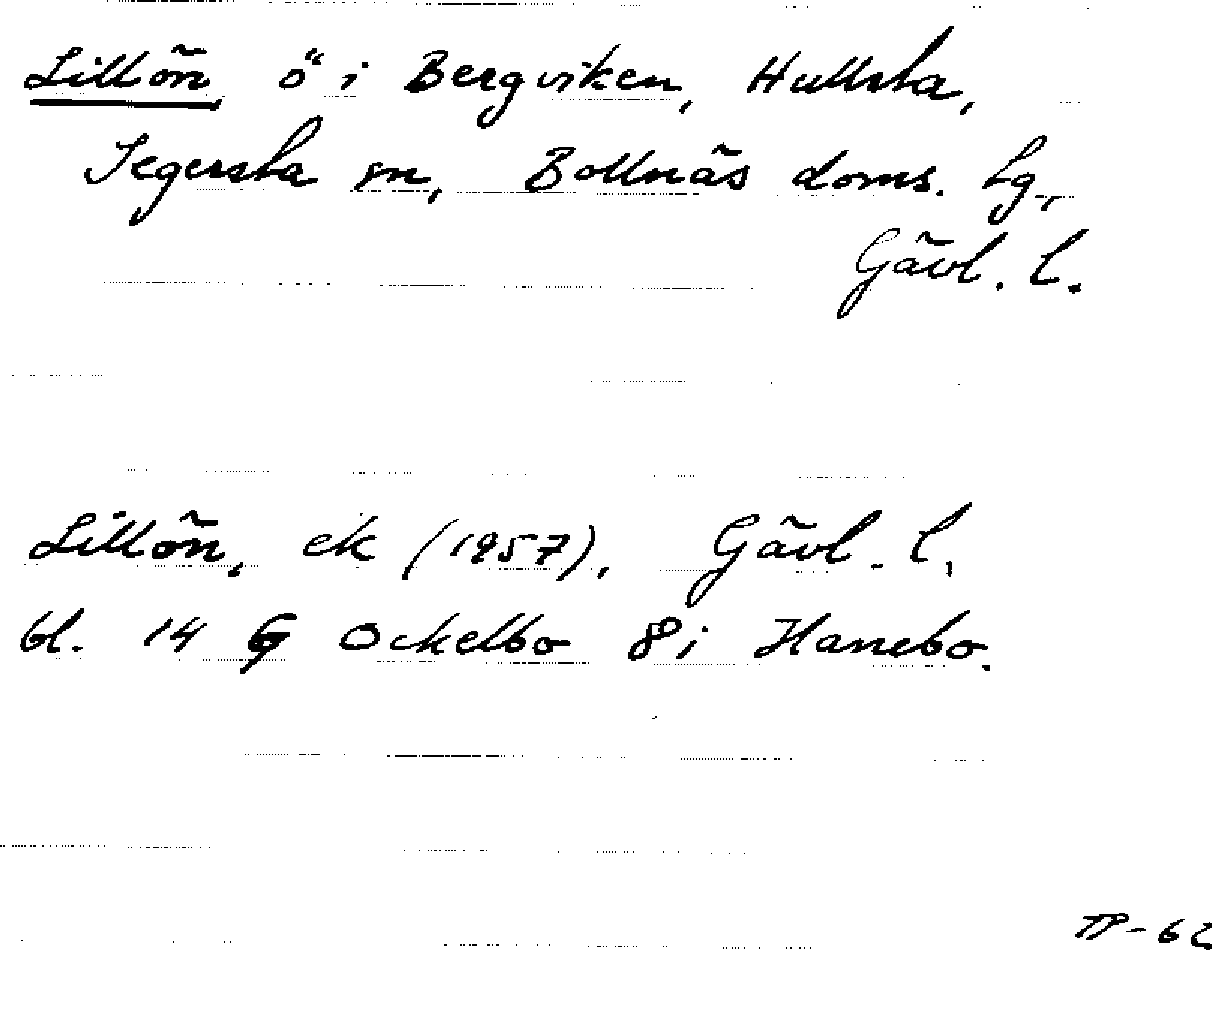 Lillön, ö i Bergviken, Hullsta,
Segersta sn, Bollnäs doms. tg,
Gävl. l.
Lillön, ek (1957), Gävl. l,
bl. 14 G Ockelbo 8 i Hanebo.
TP-62